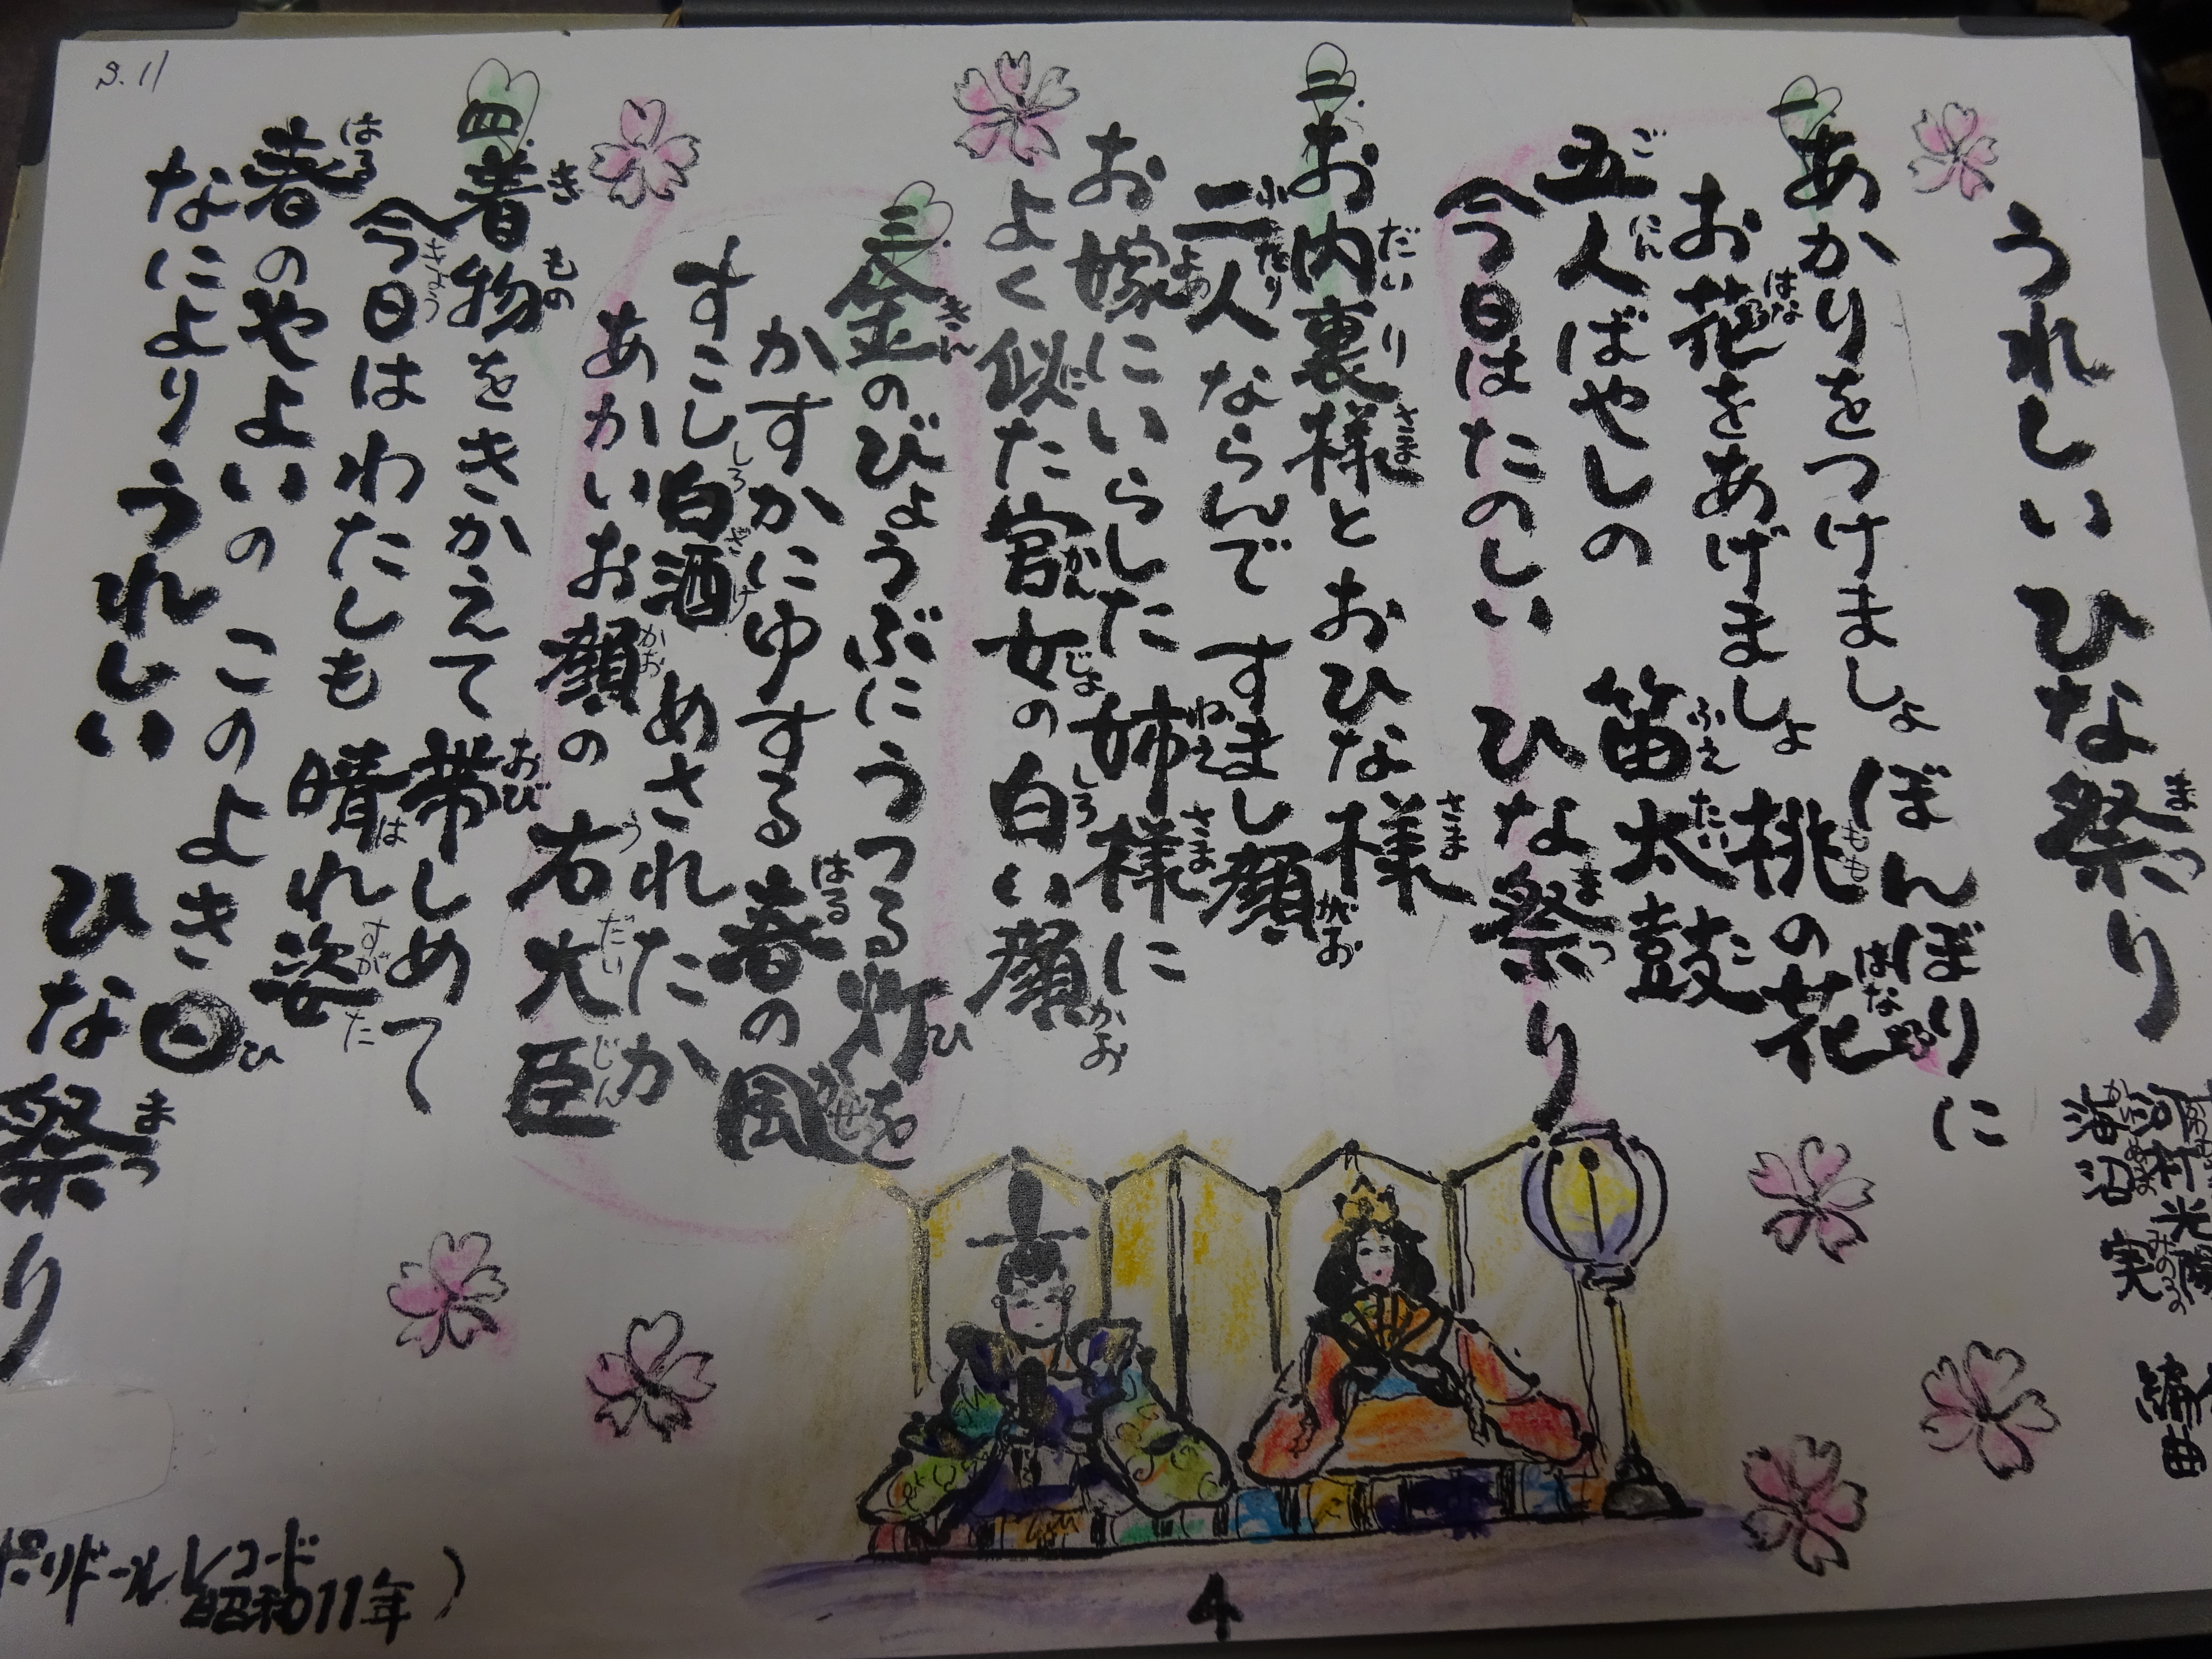 うれしいひな祭り
河村光陽
海沼実 編曲
一 あかりをつけましょ ぼんぼりに
お花をあげましょ 桃の花
五人ばやしの 笛太鼓
今日はたのしい ひな祭り
二 お内裏様とおひな様
二人ならんで すまし顔
お嫁にいらした 姉様に
よく似た官女の 白い顔
三 金のびょうぶにうつる灯を
かすかにゆする 春の風
すこし白酒 めされたか
あかいお顔の 右大臣
四 着物をきかえて 帯しめて
今日はわたしも 晴れ姿
春のやよいの このよき日
なによりうれしい ひな祭り
昭和11年)
4
S.11